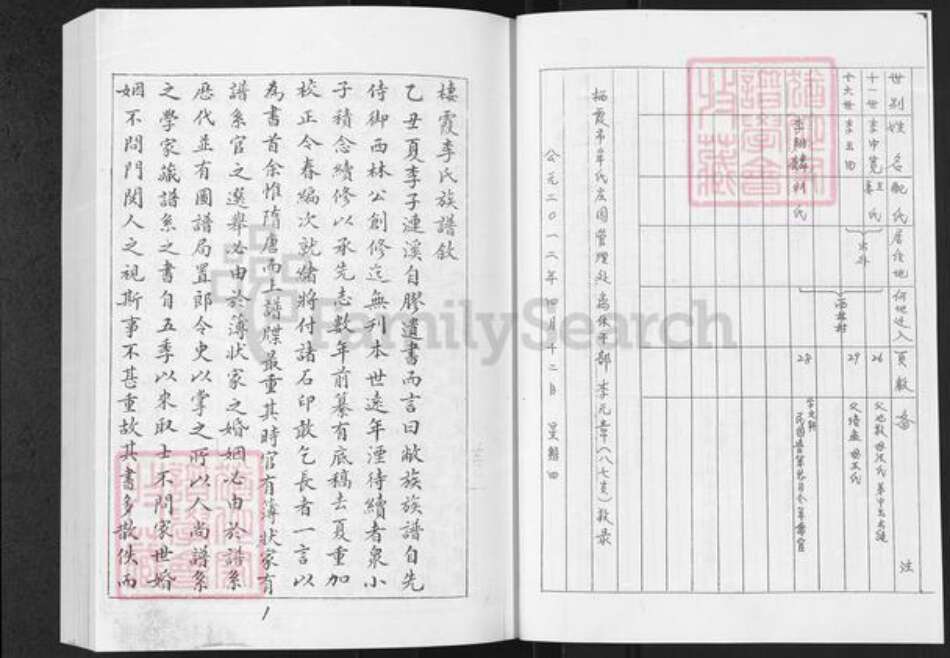 世别
姓名
配氏
居住地
何地迁入
页数
备注
十一世
李中蒐
王
姜氏
26
十六世
29
李翔麟
刘氏
西林村
28
栖霞市牟氏庄园管理处 离休干部 李元章(八七岁)敬录
公元二〇一二年四月十二日 星期四
棲霞李氏族譜敘
乙丑夏李子漣溪自膠遺書而言曰敝族族譜自先
侍御西林公創修迄無刊本世遠年湮待續者衆小
子積念續修以承先志數年前纂有底稿去夏重加
校正今春編次就緒將付諸石印敢乞長者一言以
為書首余惟隋唐而上譜牒最重其時官有簿狀家有
譜系官之選舉必由於簿狀家之婚姻必由於譜系
歷代並有圖譜局置郎令史以掌之所以人尚譜系
之學家藏譜系之書自五季以來取士不問家世婚
姻不問門閥人之視斯事不甚重故其書多散佚而
1
FamilySearch